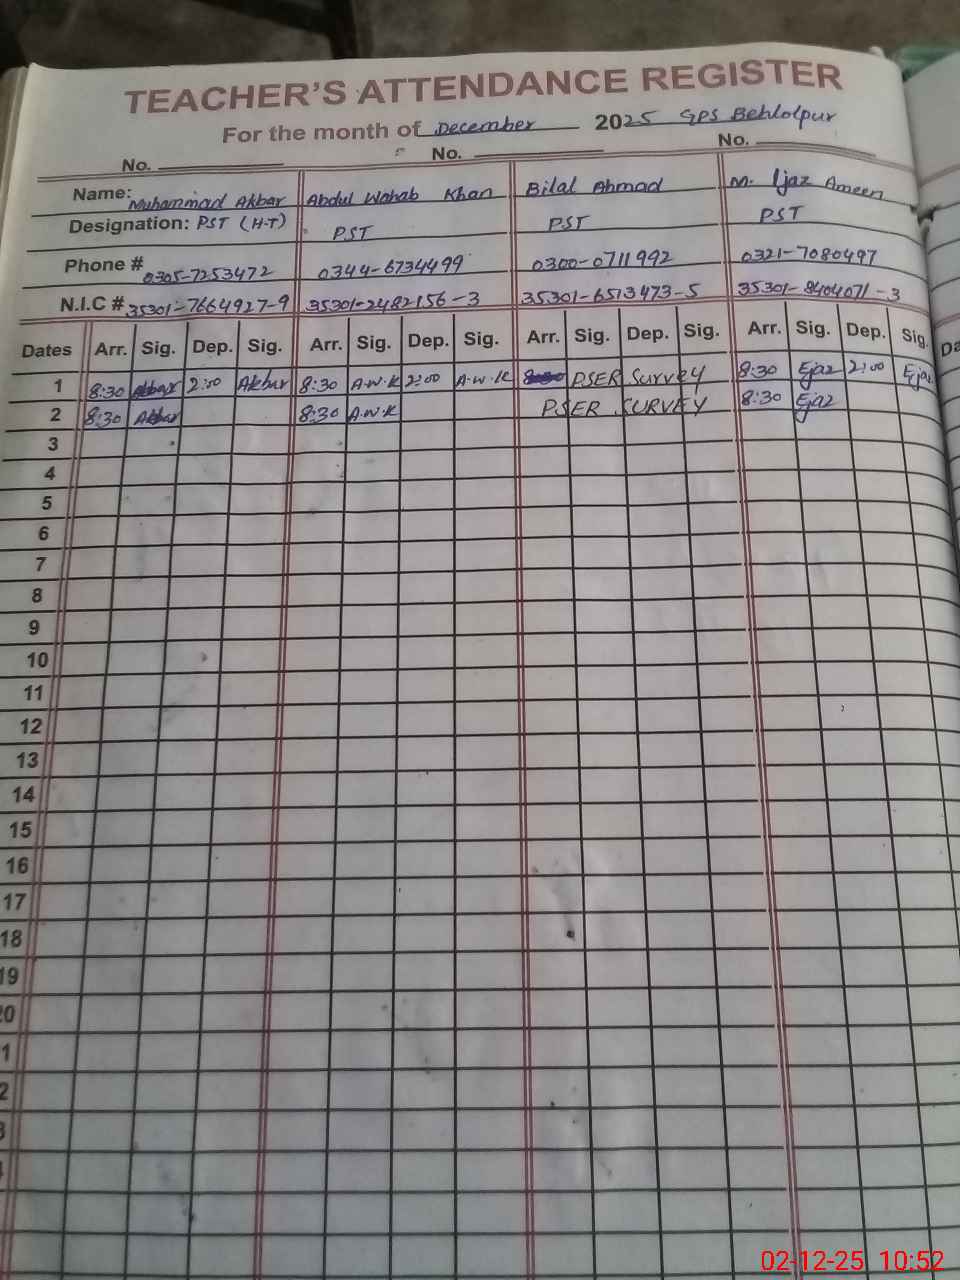 TEACHER'S ATTENDANCE REGISTER
For the month of December 2025 GPS Behlolpur
No. No. No.
Name: Muhammad Akbar Abdul Wahab Khan Bilal Ahmad M. Ijaz Ameen
Designation: PST (H-T) PST PST PST
Phone # 0305-7253472 0344-6734499 0300-0711992 0321-7080497
N.I.C # 35301-7664927-9 35301-2482156-3 35301-6513473-5 35301-8404071-3
Dates Arr. Sig. Dep. Sig. Arr. Sig. Dep. Sig. Arr. Sig. Dep. Sig. Arr. Sig. Dep. Sig. Da
1 8:30 Akbar 2:00 Akbar 8:30 A.W.K 2:00 A.W.K PSER Survey 8:30 Ejaz 2:00 Ejaz
2 8:30 Akbar 8:30 A.W.K PSER SURVEY 8:30 Ejaz
3
4
5
6
7
8
9
10
11
12
13
14
15
16
17
18
19
20
1
2
3
02-12-25 10:52